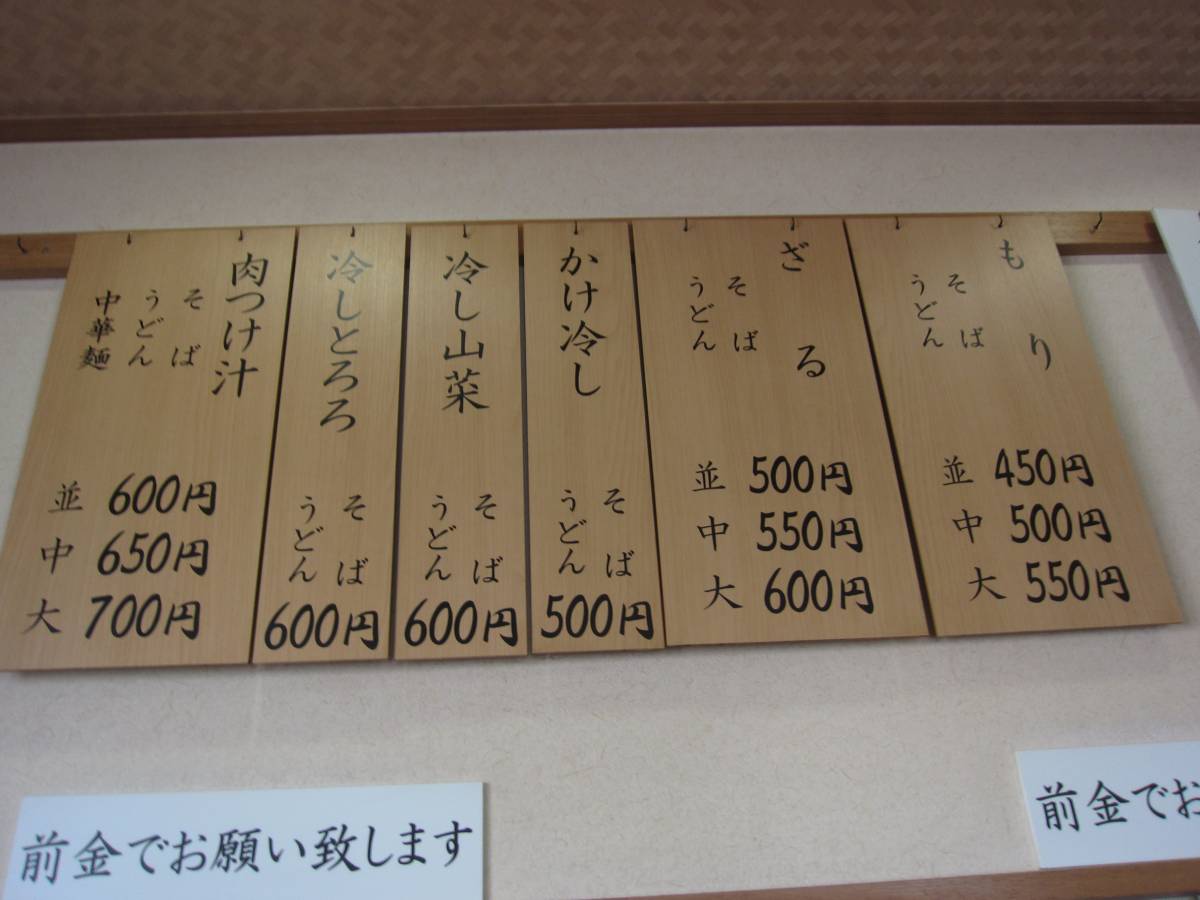 もり
そば
うどん
並 450円
中 500円
大 550円
ざる
そば
うどん
並 500円
中 550円
大 600円
かけ冷し
そば
うどん
500円
冷し山菜
そば
うどん
600円
冷しとろろ
そば
うどん
600円
肉つけ汁
そば
うどん
中華麺
並 600円
中 650円
大 700円
前金でお願い致します
前金でお